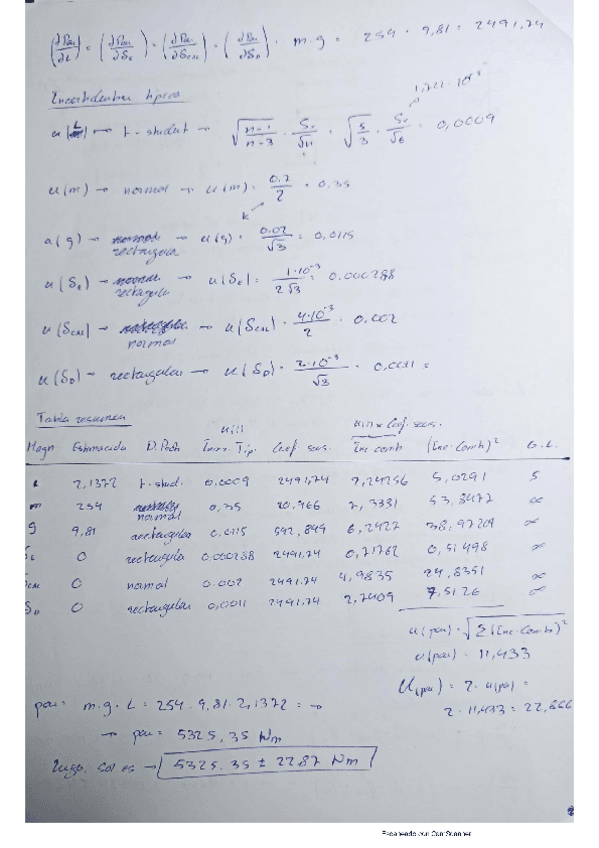 (∂Par/∂L) = (∂Par/∂δE) = (∂Par/∂δCAL) = (∂Par/∂δD) = m·g = 254 · 9,81 = 2491,74
Incertidumbres típicas
1,722·10⁻³
u(L) → t-student → √(n-1/n-3) · Sv/√n = √(5/3) · Sv/√6 = 0,0009
u(m) → normal → u(m) = 0.7/2 = 0.35
k
u(g) → rectangular → u(g) = 0.02/√3 = 0,0115
u(δE) → rectangular → u(δE) = 1·10⁻³/2√3 = 0.000288
u(δCAL) → normal → u(δCAL) = 4·10⁻³/2 = 0.002
u(δD) → rectangular → u(δD) = 2·10⁻³/√3 = 0,0011 =
Tabla resumen
u(i) u(i) × Coef. sens.
Magn Estimacida D. Prob Incer. Tip. Coef. sens. Inc comb (Inc·Comb)² G.L.
L 2,1372 t-stud. 0.0009 2491,74 2,24256 5,0291 5
m 254 normal 0,35 20.966 7,3381 53,8477 ∞
g 9,81 rectangular 0.0115 542,849 6,2427 38,97204 ∞
δE 0 rectangular 0.000288 2491.74 0,71762 0,51498 ∞
δCAL 0 normal 0.002 2491.74 4,9835 24,8351 ∞
δD 0 rectangular 0,0011 2491,74 2,7409 7,5126 ∞
u(par) = √Σ(Inc·Comb)²
u(par) = 11,433
U(par) = 2 · u(par) =
2 · 11,433 = 22,866
par = m·g·L = 254 · 9,81 · 2,1372 = →
→ par = 5325,35 Nm
luego, sol es → 5325.35 ± 22.87 Nm
Escaneado con CamScanner